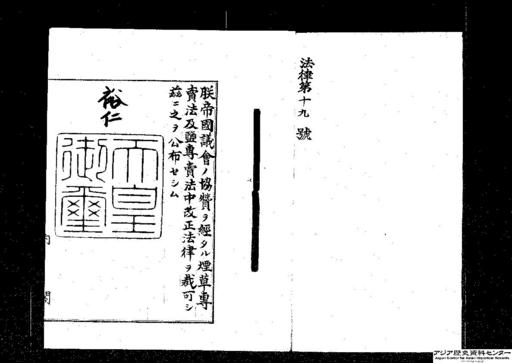 法律第十九號
朕帝國議會ノ協贊ヲ經タル煙草專
賣法及鹽專賣法中改正法律ヲ裁可シ
茲ニ之ヲ公布セシム
裕仁
天皇
御璽
内閣
アジア歴史資料センター
Japan Center for Asian Historical Records